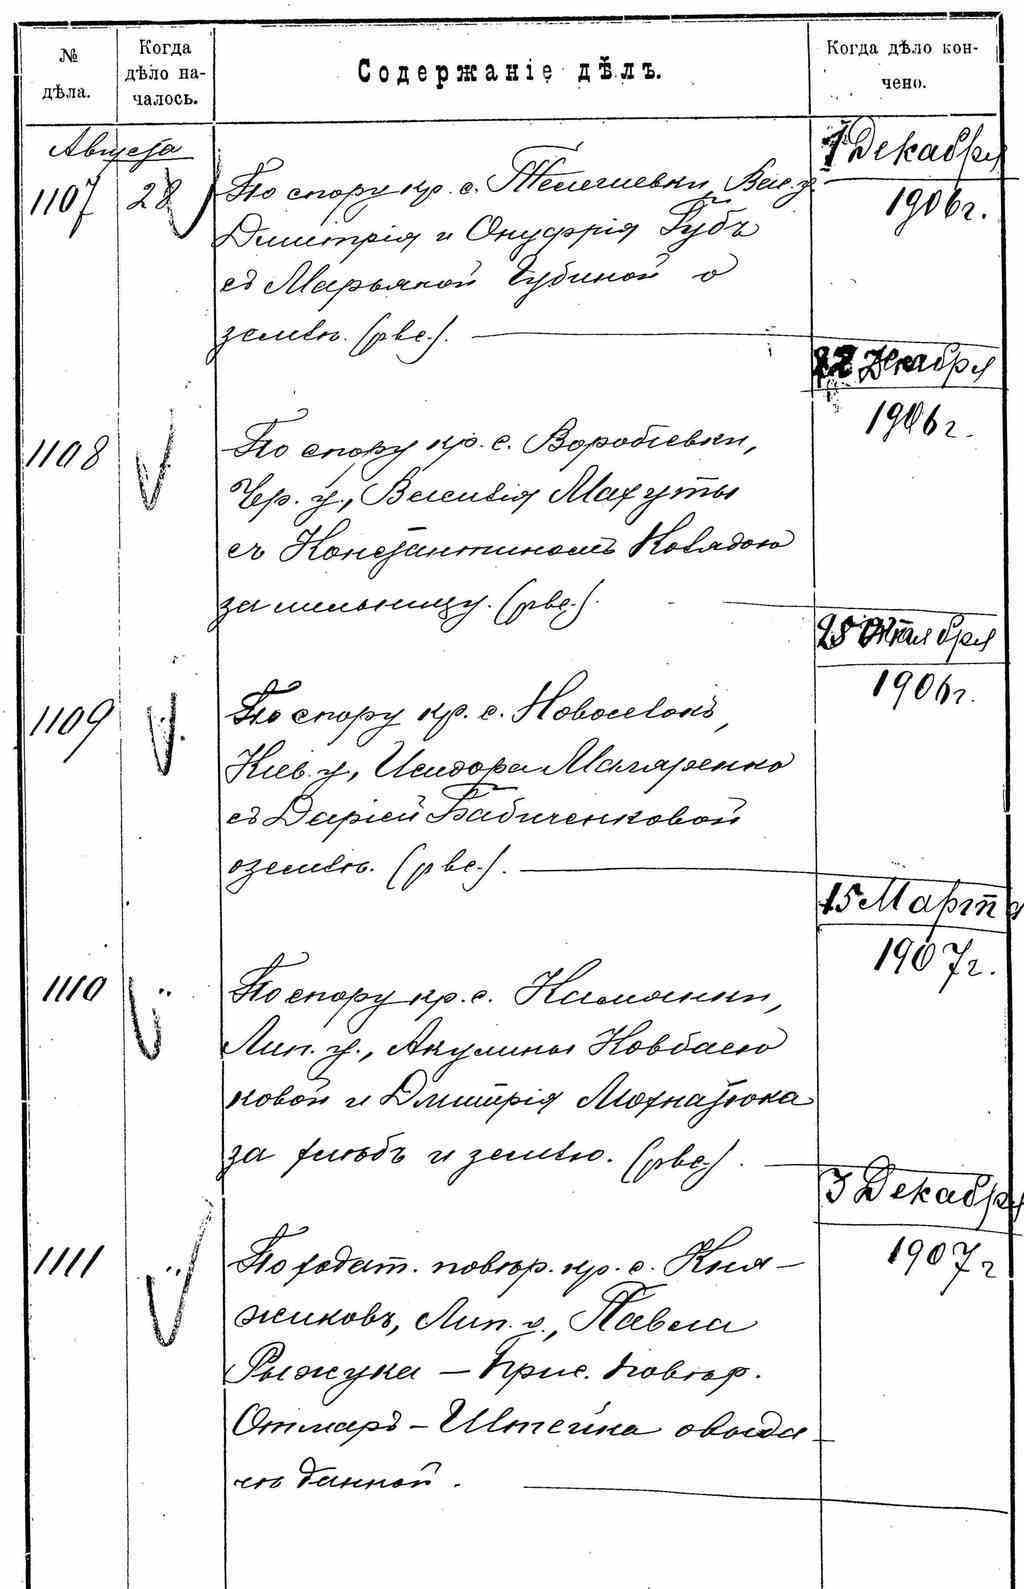 №
дѣла.
Когда
дѣло на-
чалось.
Содержаніе дѣлъ.
Когда дѣло кон-
чено.
Августа
1107
28
По спору кр. с. Телешевки, Вас. у.
Дмитрія и Онуфрія Губъ
съ Марьяной Губиной о
землѣ. (рвс.).
1 Декабря
1906 г.
1108
По спору кр. с. Воробіевки,
Чер. у., Василія Махуты
съ Константиномъ Колядою
за мельницу. (рвс.).
22 Декабря
1906 г.
1109
По спору кр. с. Новоселокъ,
Кіев. у., Исидора Макаренко
съ Даріей Бабиченковой
о землѣ. (рвс.).
25 Октября
1906 г.
1110
По спору кр. с. Камянки,
Лип. у., Акулины Ковбасю
ковой и Дмитрія Мохнатюка
за хлѣбъ и землю. (рвс.).
15 Марта
1907 г.
1111
По ходат. повѣр. кр. с. Кня-
жиковъ, Лип. у., Павла
Рыжука – Прис. Повѣр.
Отмаръ-Штейна о выда-
чѣ данной.
3 Декабря
1907 г